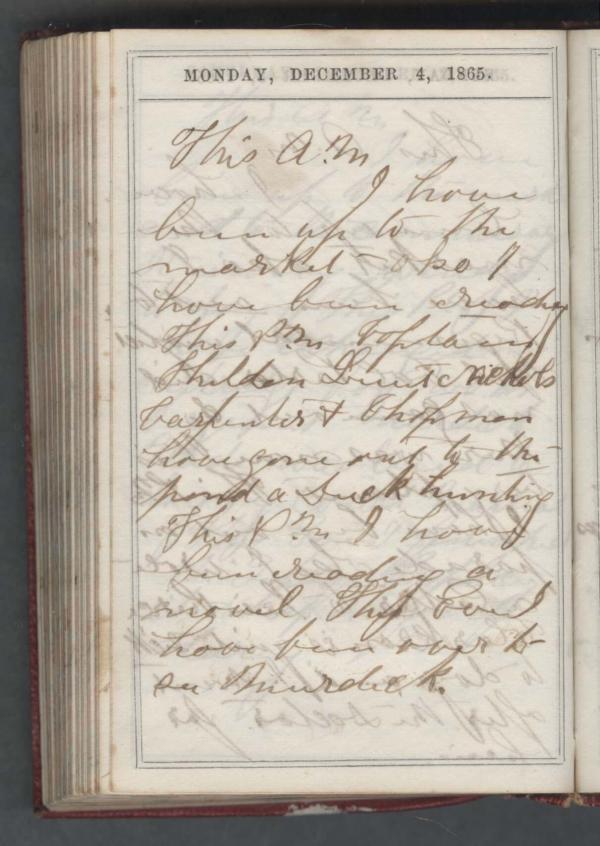 MONDAY, DECEMBER 4, 1865.
This A.M
I have
been up to the
market - also I
have been reading
This P.M Captain
Sheldon Lieut Nichols
Carpenter & Chapman
have gone out to the
pond a Duck hunting
This P.M I have
been reading a
novel. This Eve I
have been over to
see Burdick.